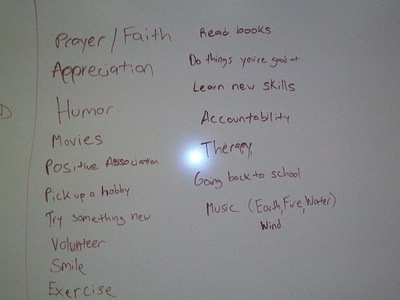 Prayer/Faith
Appreciation
Humor
Movies
Positive Association
Pick up a hobby
Try something new
Volunteer
Smile
Exercise
Read books
Do things you're good at
Learn new skills
Accountability
Therapy
Going back to school
Music (Earth, Fire, Water)
Wind